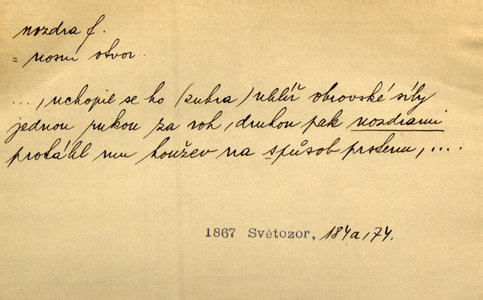 nozdra f.
= nosní otvor.
..., uchopil se ho (zubra) uhlíř obrovské síly
jednou rukou za roh, druhou pak nozdrami
protáhl mu houžev na spůsob prstenu, ...
1867 Světozor, 184a, 74.